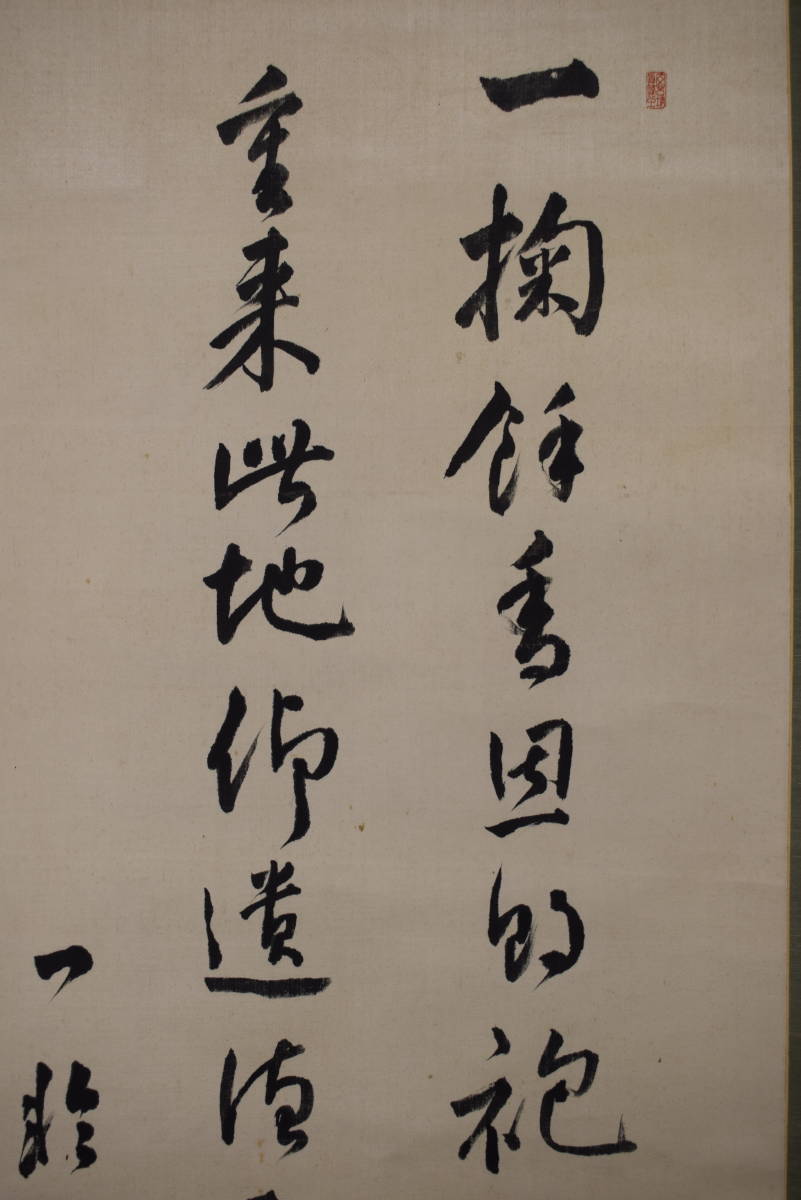 一掬餘香恩賜袍
重来此地仰遺德
一